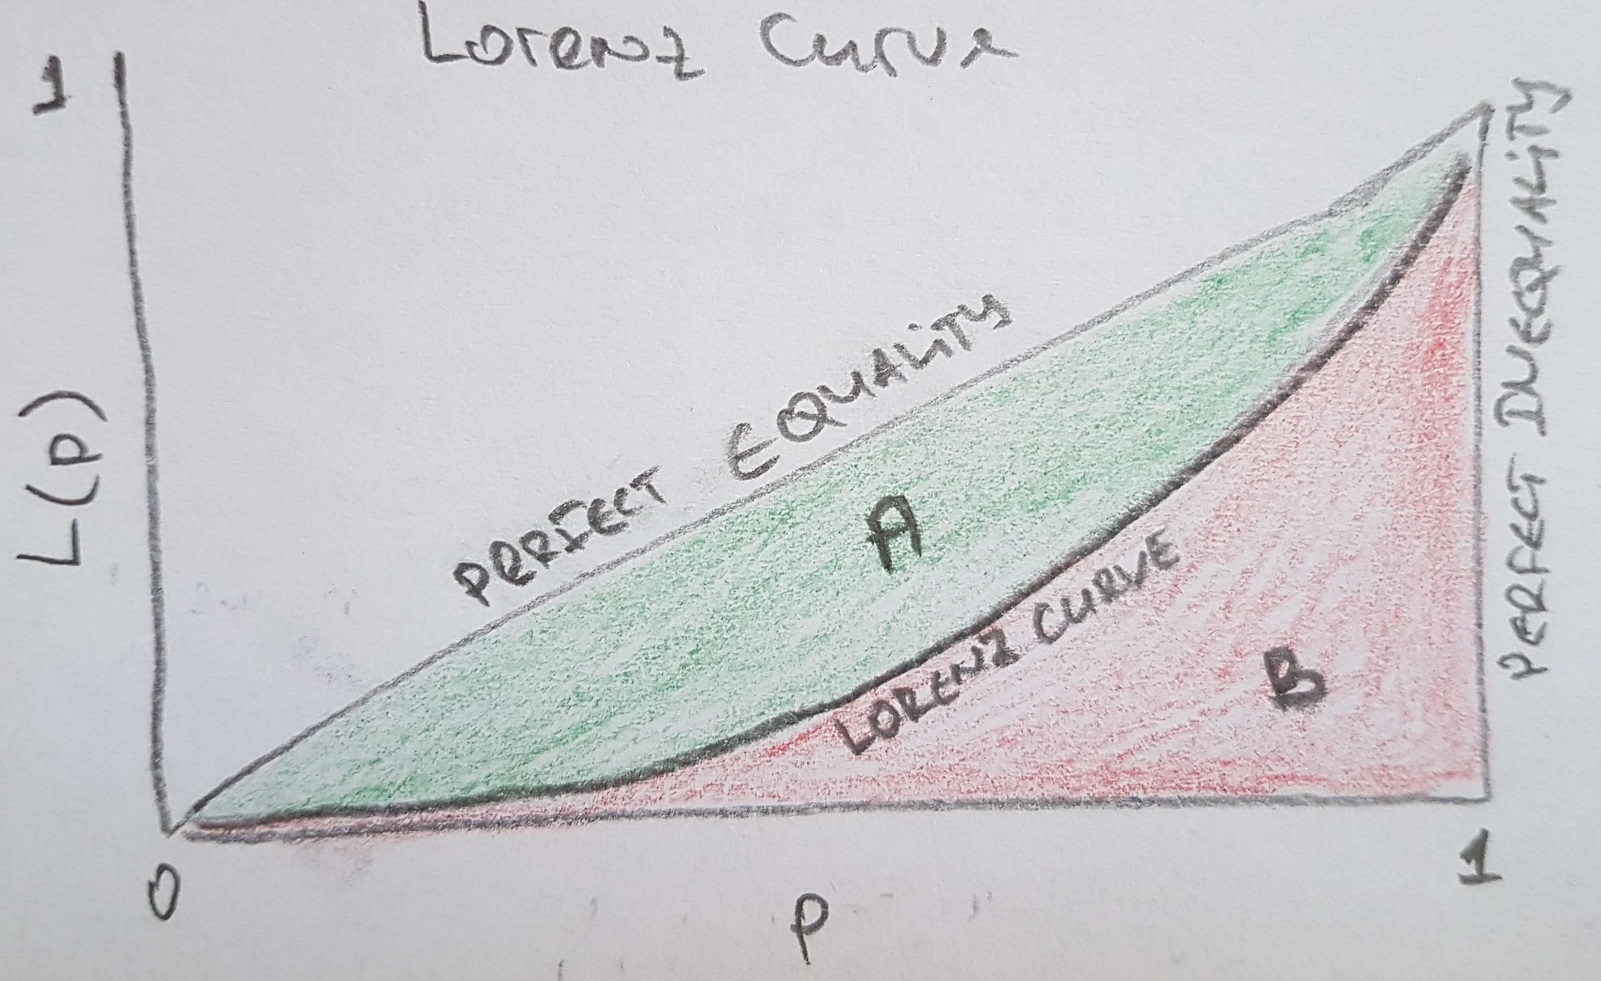 Lorenz Curve
1
L(p)
PERFECT EQUALITY
A
LORENZ CURVE
B
PERFECT INEQUALITY
0
P
1